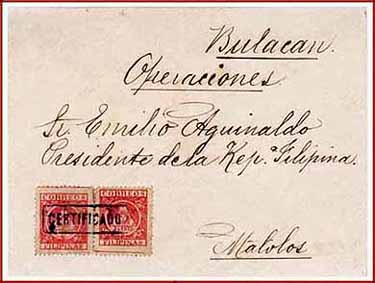 Bulacan.
Operaciones.
Sr. Emilio Aguinaldo
Presidente de la Repª. Filipina.
CORREOS CORREOS
CERTIFICADO
FILIPINAS FILIPINAS
Malolos